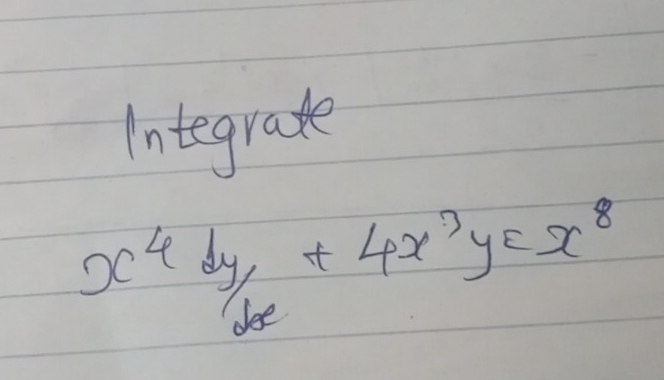 Integrate
x⁴ dy/dx + 4x³y = x⁸